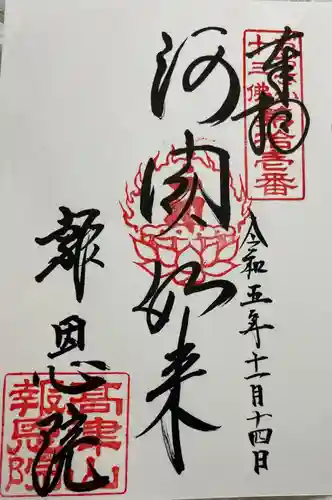 奉拝
十三佛
第拾壹番
阿閦如来
令和五年十一月十四日
報恩院
高津山
報恩院